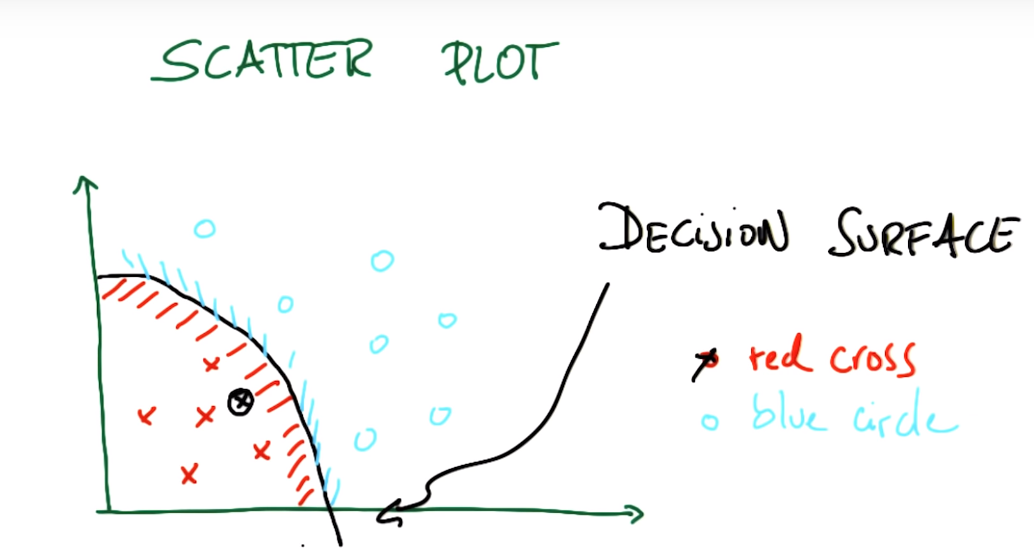 SCATTER PLOT
DECISION SURFACE
red cross
blue circle